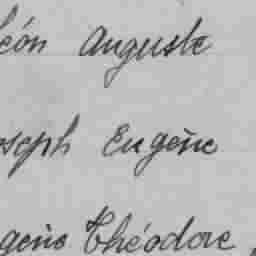 Léon Auguste
oseph Eugène
gène Théodore,